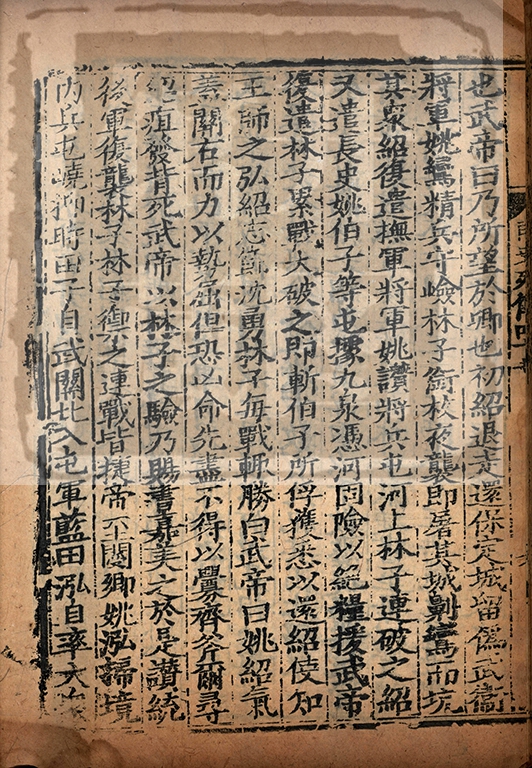 也武帝曰乃所望於卿也初紹退走還保定城留偽武衞
將軍姚鸞精兵守嶮林子銜枚夜襲即屠其城劓鸞而坑
其衆紹復遣撫軍將軍姚讚將兵屯河上林子連破之紹
又遣長史姚伯子等屯據九泉憑河固險以絕糧援武帝
復遣林子累戰大破之即斬伯子所俘獲悉以還紹使知
王師之弘紹志節沈勇林子每戰輒勝白武帝曰姚紹氣
蓋關右而力以勢屈但恐凶命先盡不得以釁齊斧爾尋
紹疽發背死武帝以林子之驗乃賜書嘉美之於是讚統
後軍復襲林子林子禦之連戰皆捷帝至閿鄉姚泓掃境
內兵屯嶢柳時田子自武關北入屯軍藍田泓自率大衆